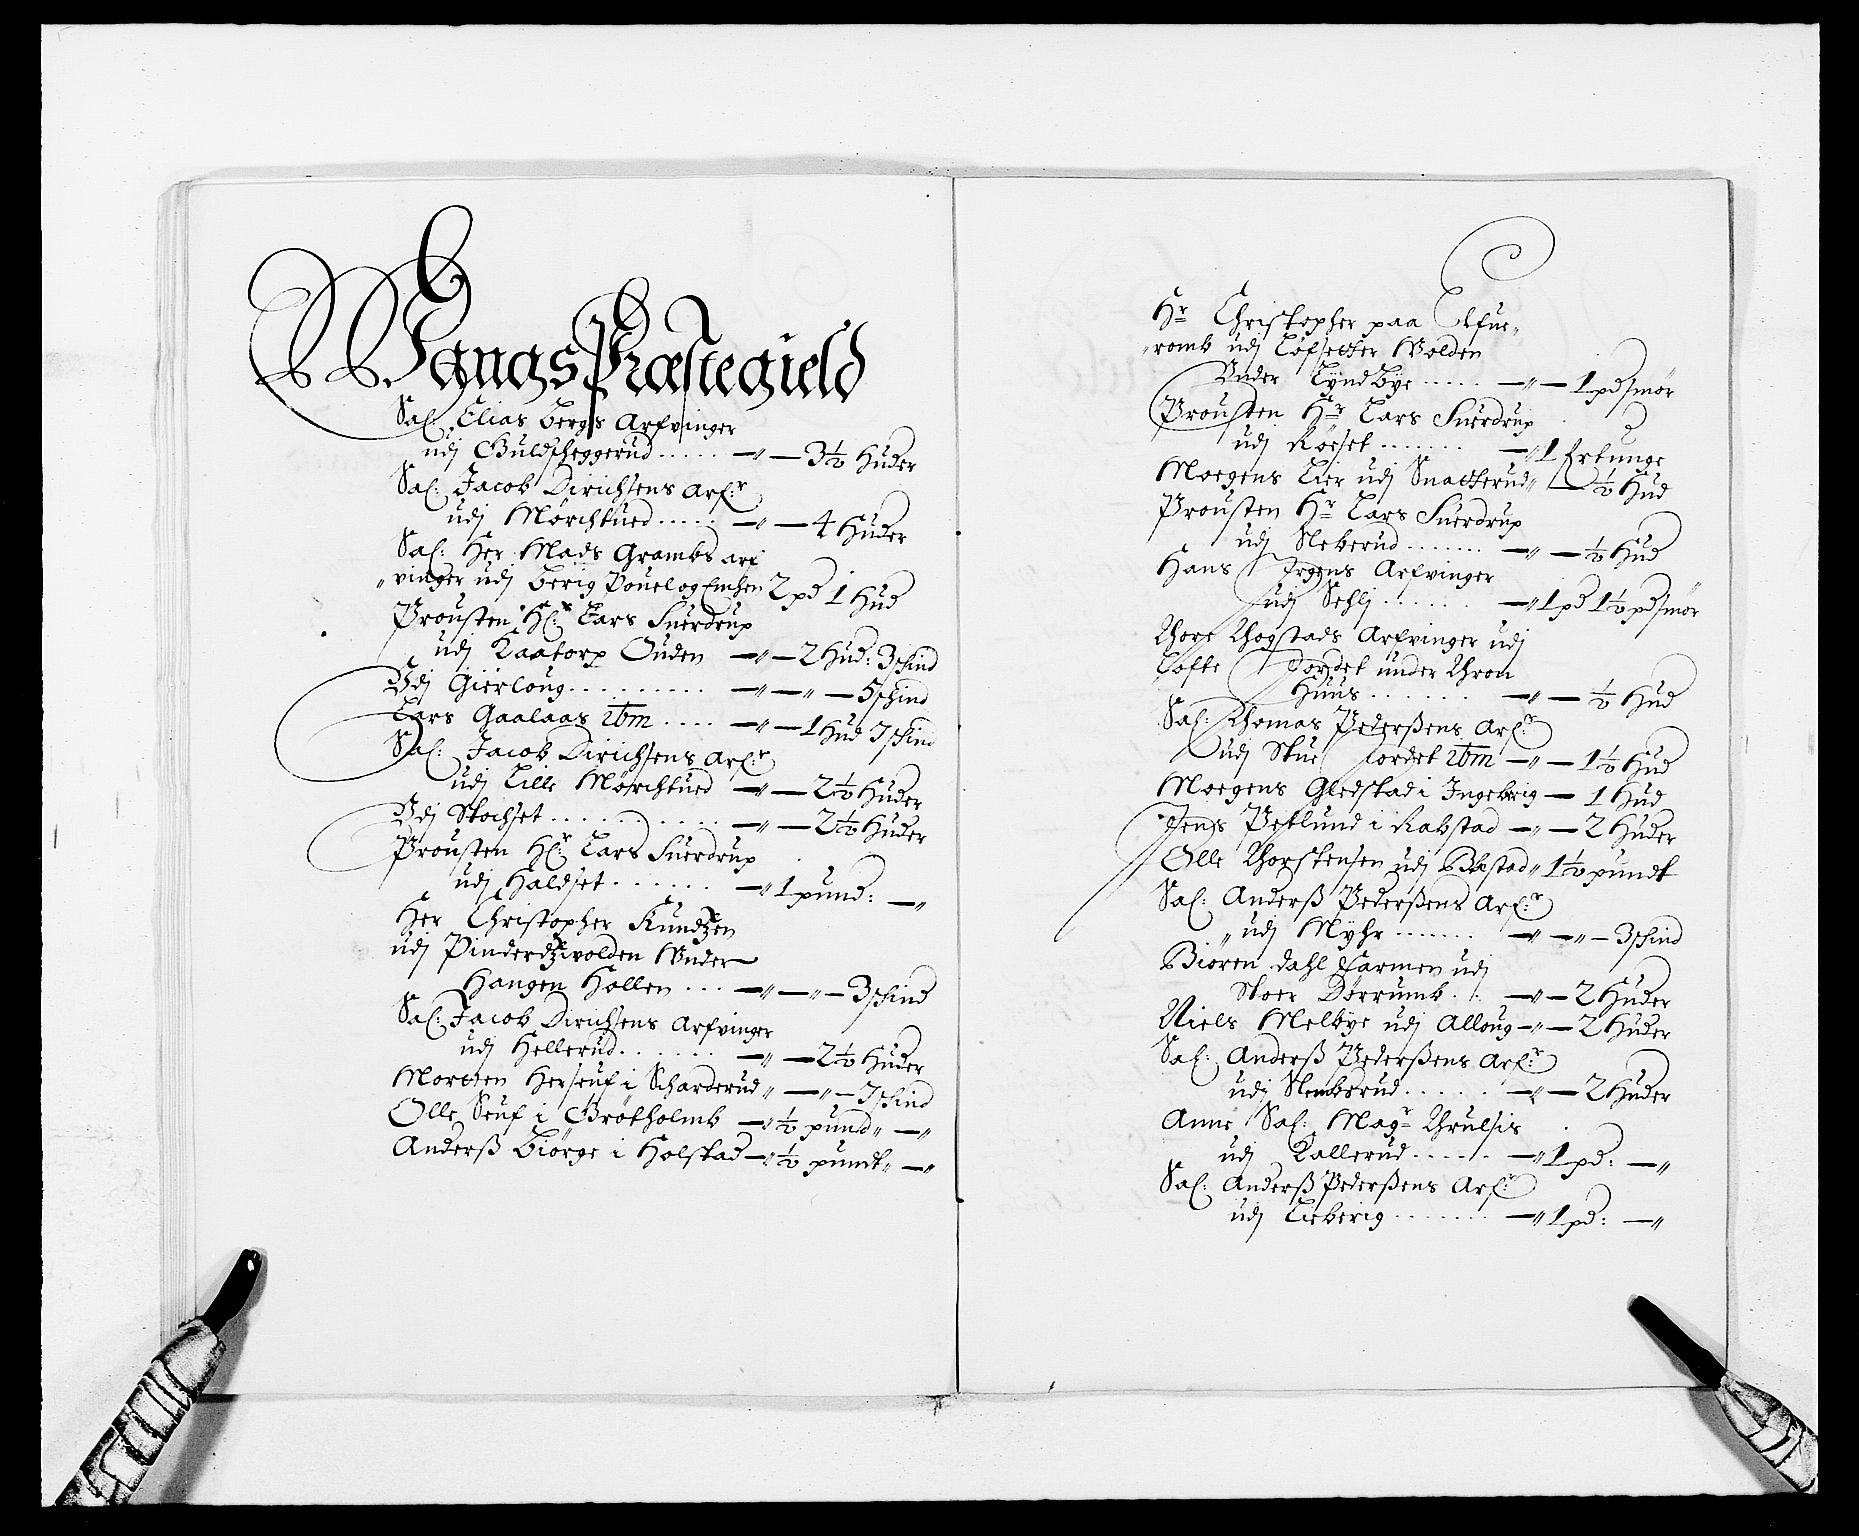 Wangs Præstegield
Sal: Elias Bergs Arfvinger
udj Guldscheggerud ..... —〃— 3½ Huder
Sal: Jacob Dirichsens Arf:r
udj Mørchtued ..... —〃— 4 Huder
Sal: Her Mads Grambs arf
〃vinger udj Berig Pouel og Emsen 2 pd 1 Hud
Prousten Hr: Lars Suerdrup
udj Kaatorp Ouden —〃— 2 Hud: 3 schind
Udj Gierloug ......... —〃—〃— 5 schind
Lars Gaalaas ibm .... —〃— 1 Hud 7 schind
Sal: Jacob Dirichsens Arf:r
udj Lille Mørchtued —〃— 2½ Huder
Udj Stochset ........... —〃— 2½ Huder
Prousten Hr: Lars Suerdrup
udj Haldset ...... —〃 1 pund: —〃
Her Christopher Knudzen
udj Pinderdzwolden Under
Haugen Hollen ... —〃—〃— 3 schind
Sal: Jacob Dirichsens Arfvinger
udj Hellerud ...... —〃— 2½ Huder
Morten Herseuf i Scharderud 〃—〃— 7 schind
Olle Seuf i Grøtholmb —〃 ½ pund 〃—〃
Anderß Biørge i Holstad —〃 ½ pundt 〃—〃
Hr Christopher paa Elfue〃
〃romb udj Løfsetter Wolden
Under Lyndbye ..... —〃— 1 pd smør
Prousten Hr Lars Suerdrup
udj Røeset ....... —〃 1 Ertunge
Moegens Lier udj Snatterud 〃— ½ Hud
Prousten Hr Lars Suerdrup
udj Neberud ....... —〃— ½ Hud
Hans Irgens Arfvinger
udj Sehlj ...... —〃 1 pd 1½ pd smør
Thore Thogstads Arfvinger udj
Tofte Jordet under Thron
Huus ....... —〃— ½ Hud
Sal: Thomas Pederßens Arf:r
udj Stue Jordet ibm —〃— 1½ Hud
Moegens Gledstad i Ingeberig — 1 Hud
Jens Vestlund i Rabstad —〃— 2 Huder
Olle Thorstensen udj Bestad 〃 1½ pundt
Sal: Anderß Pederßens Arf:r
〃 udj Myhr ....... —〃—〃— 3 schind
Biøren Dahl Farmen udj
Stoer Dørrumb ... —〃— 2 Huder
Niels Melbye udj Alloug —〃— 2 Huder
Sal: Anderß Pederßens Arf:r
udj Nembsrud ...... —〃— 2 Huder
Anne Sal: Magr Thrulsis
udj Kallerud ...... —〃 1 pd: —〃
Sal: Anderß Pederßens Arf:r
udj Lieberig ....... —〃 1 pd: —〃